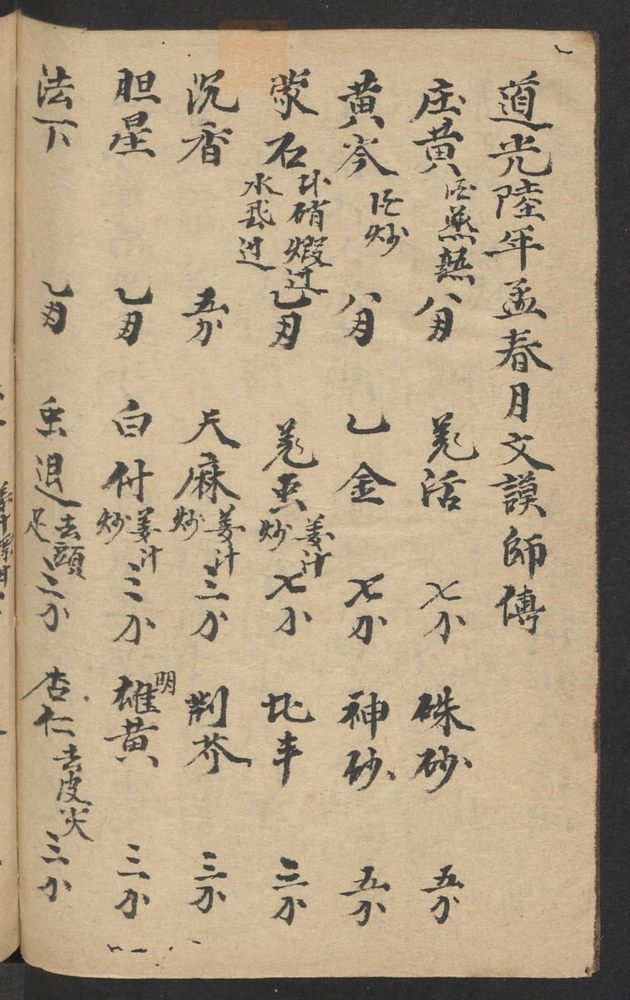 道光陸年孟春月文謨師傳
庄黄 酒蒸熟 八分 羌活 七分 硃砂 五分
黄芩 酒炒 八分 乙金 七分 神砂 五分
蒙石 硝煅过 水飛过 乙分 姜虫 姜汁炒 七分 三分
沉香 五分 天麻 姜汁炒 三分 荆芥 三分
胆星 乙分 白付 姜汁炒 三分 明雄黄 三分
法下 乙分 虫退 去頭足 三分 杏仁 去皮尖 三分